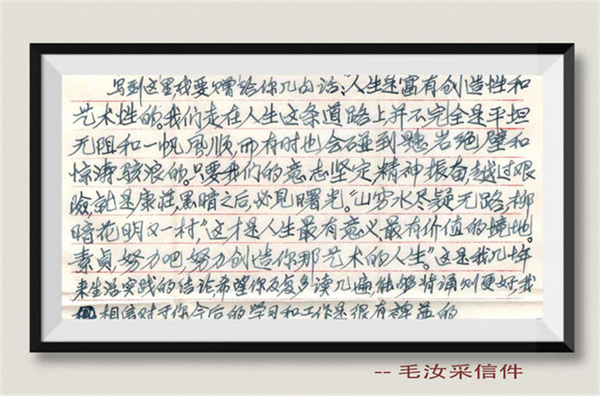 写到这里我要赠给你几句话:“人生是富有创造性和
艺术性的。我们走在人生这条道路上并不完全是平坦
无阻和一帆风顺,而有时也会碰到悬岩绝壁和
惊涛骇浪的。只要我们的意志坚定,精神振奋,越过艰
险就是康庄,黑暗之后,必见曙光。“山穷水尽疑无路,柳
暗花明又一村”,这才是人生最有意义最有价值的境地。
素贞,努力吧,努力创造你那艺术的人生”。这是我几十年
来生活实践的结论希望你反复多读几遍,能够背诵则更好,我
相信对于你今后的学习和工作是很有裨益的
-- 毛汝采信件